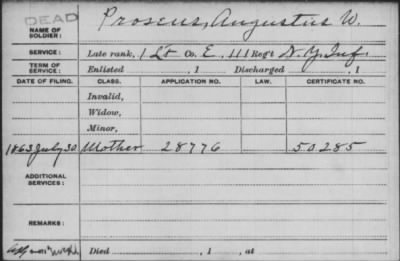 DEAD
NAME OF SOLDIER: Proseus, Augustus W.
SERVICE: Late rank, 1 Lt Co. E, 111 Reg't N.Y. Inf.
TERM OF SERVICE: Enlisted , 1 Discharged , 1
DATE OF FILING. CLASS. APPLICATION NO. LAW. CERTIFICATE NO.
Invalid,
Widow,
Minor,
1863 July 30 Mother 28776 50285
ADDITIONAL SERVICES:
REMARKS:
Died , 1 , at